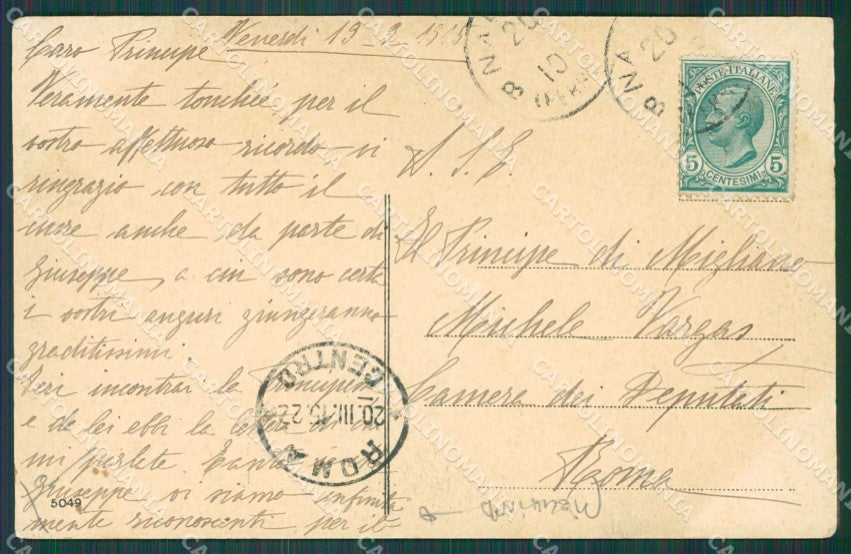 Venerdi 19-3 1915
Caro Principe
Veramente tonchée per il
vostro affettuoso ricordo vi
ringrazio con tutto il
cuore anche da parte di
Giuseppe, a cui sono certa
i vostri auguri giungeranno
graditissimi.
Ieri incontrai la Principessa
e da lei ebbi la
mi parlate
Giuseppe vi siamo infinita
mente riconoscenti per il
5049
S. E.
Il Principe di Migliano
Michele Vargas
Camera dei Deputati
Roma
POSTE ITALIANE
5 CENTESIMI 5
20
15
20
ROMA
CENTRO
20.III.15.22
CARTOLINOMANIA